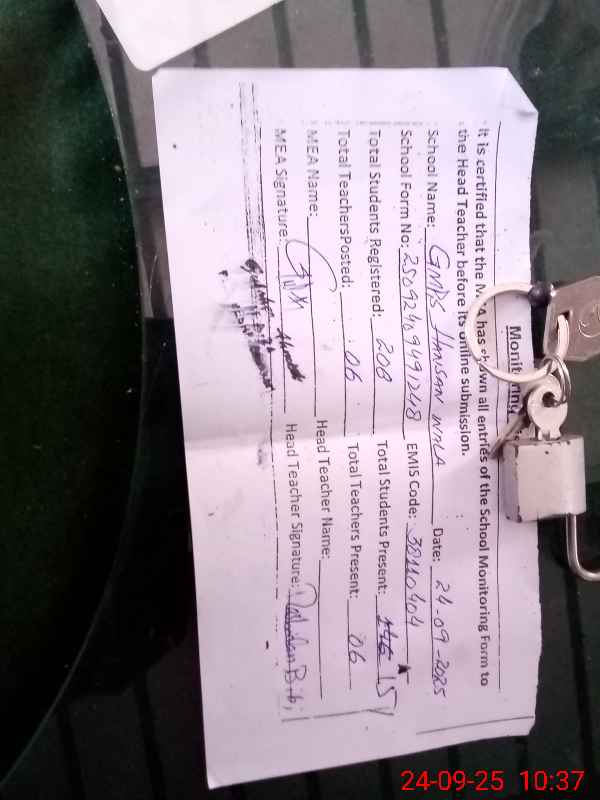 Monitoring
It is certified that the MEA has shown all entries of the School Monitoring Form to
the Head Teacher before its online submission.
School Name: GMPS HASSAN WALA Date: 24-09-2025
School Form No: 25092409491248 EMIS Code: 38110404
Total Students Registered: 208 Total Students Present: 146 154
Total TeachersPosted: 06 Total Teachers Present: 06
MEA Name: Head Teacher Name:
MEA Signature: Head Teacher Signature: Bibi
24-09-25 10:37